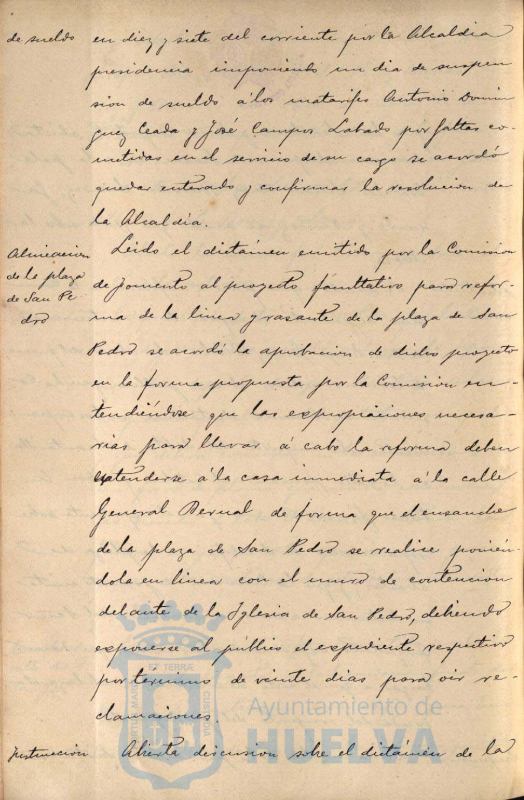 de sueldo
en diez y siete del corriente por la Alcaldia
presidencia imponiendo un dia de suspen
sion de sueldo á los matarifes Antonio Domin
guez Ceada y José Campos Labado por faltas co-
metidas en el servicio de su cargo se acordó
quedar enterado y confirmar la resolucion de
la Alcaldía.
Alineacion
de la plaza
de San Pe-
dro
Leido el dictámen emitido por la Comision
de fomento al proyecto facultativo para refor-
ma de la linea y rasante de la plaza de San
Pedro se acordó la aprobacion de dicho proyecto
en la forma propuesta por la Comision en-
tendiéndose que las expropiaciones necesa-
rias para llevar á cabo la reforma deben
extenderse á la casa inmediata á la calle
General Bernal de forma que el ensanche
de la plaza de San Pedro se realice ponién-
dola en linea con el muro de contencion
delante de la Iglesia de San Pedro, debiendo
exponerse al público el expediente respectivo
por termino de veinte dias para oir re-
clamaciones.
Abierta discusion sobre el dictámen de la
Ayuntamiento de
HUELVA